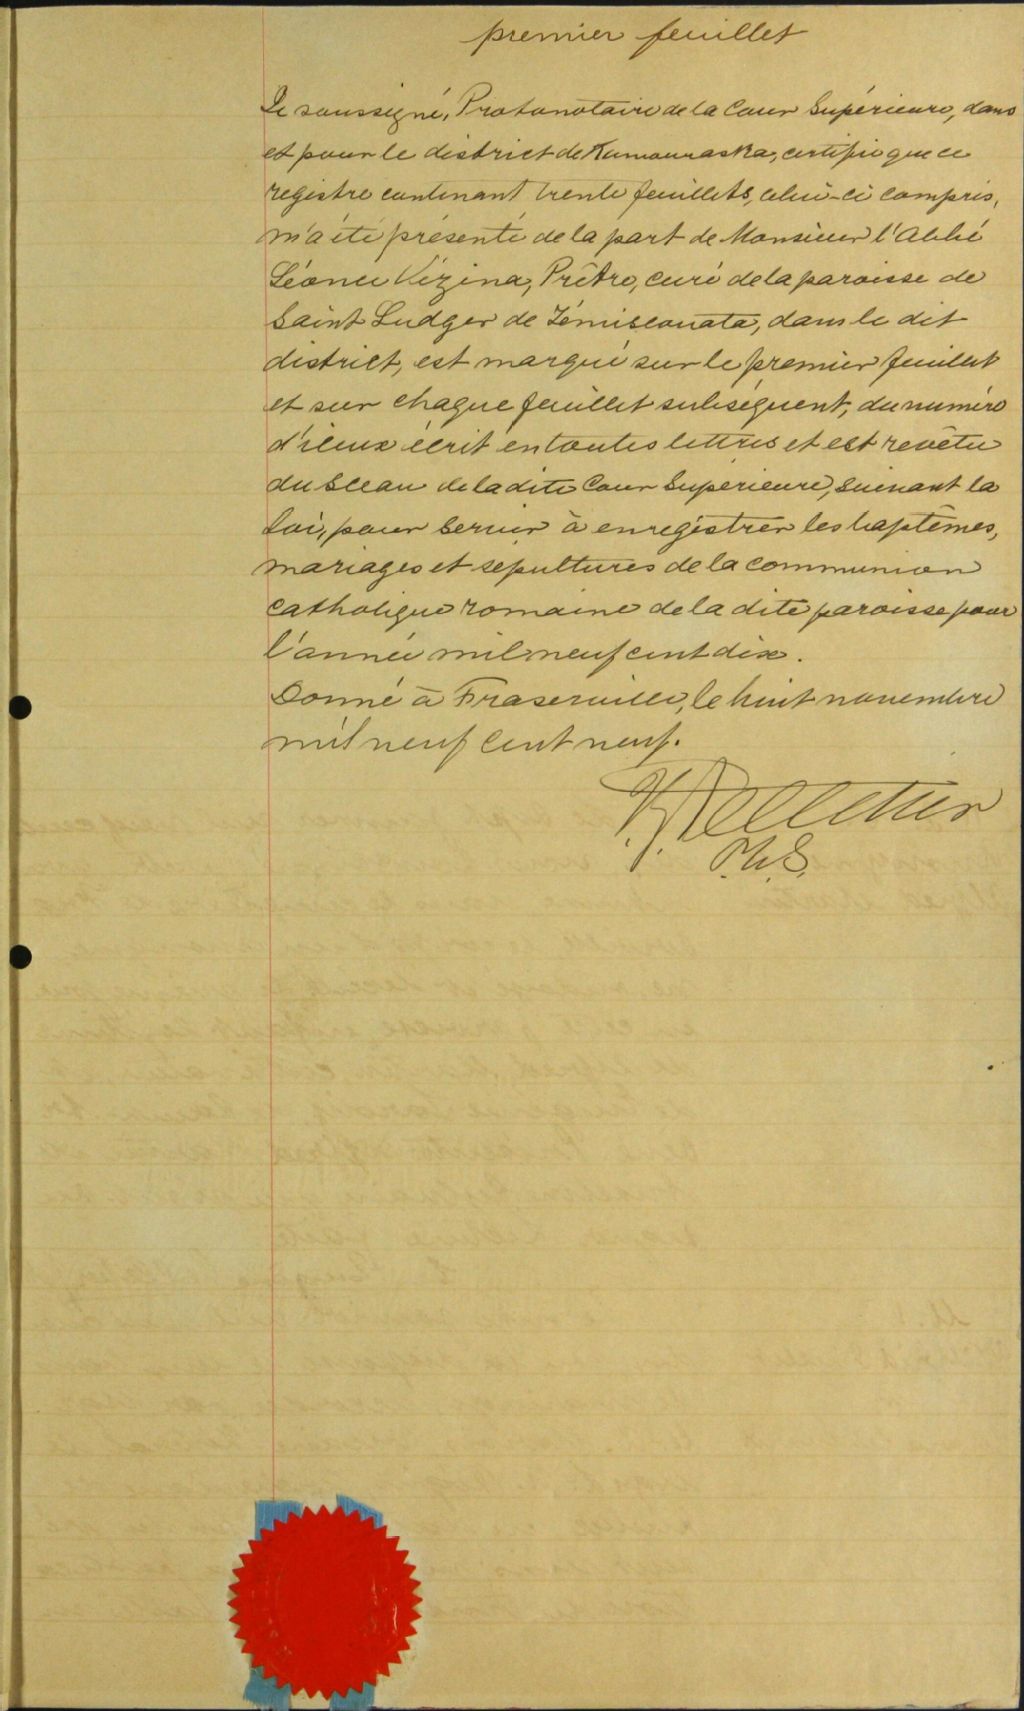 premier feuillet
Je soussigné, Protonotaire de la Cour Supérieure, dans
et pour le district de Kamouraska, certifie que ce
registre contenant trente feuillets, celui-ci compris,
m'a été présenté de la part de Monsieur l'Abbé
Léonce Vézina, Prêtre, curé de la paroisse de
Saint Ludger de Témiscouata, dans le dit
district, est marqué sur le premier feuillet
et sur chaque feuillet subséquent, du numéro
d'iceux écrit en toutes lettres et est revêtu
du Sceau de la dite Cour Supérieure, suivant la
loi, pour servir à enregistrer les baptêmes,
mariages et sépultures de la communion
catholique romaine de la dite paroisse pour
l'année mil neuf cent dix.
Donné à Fraserville, le huit novembre
mil neuf cent neuf.
Pelletier
P.C.S.